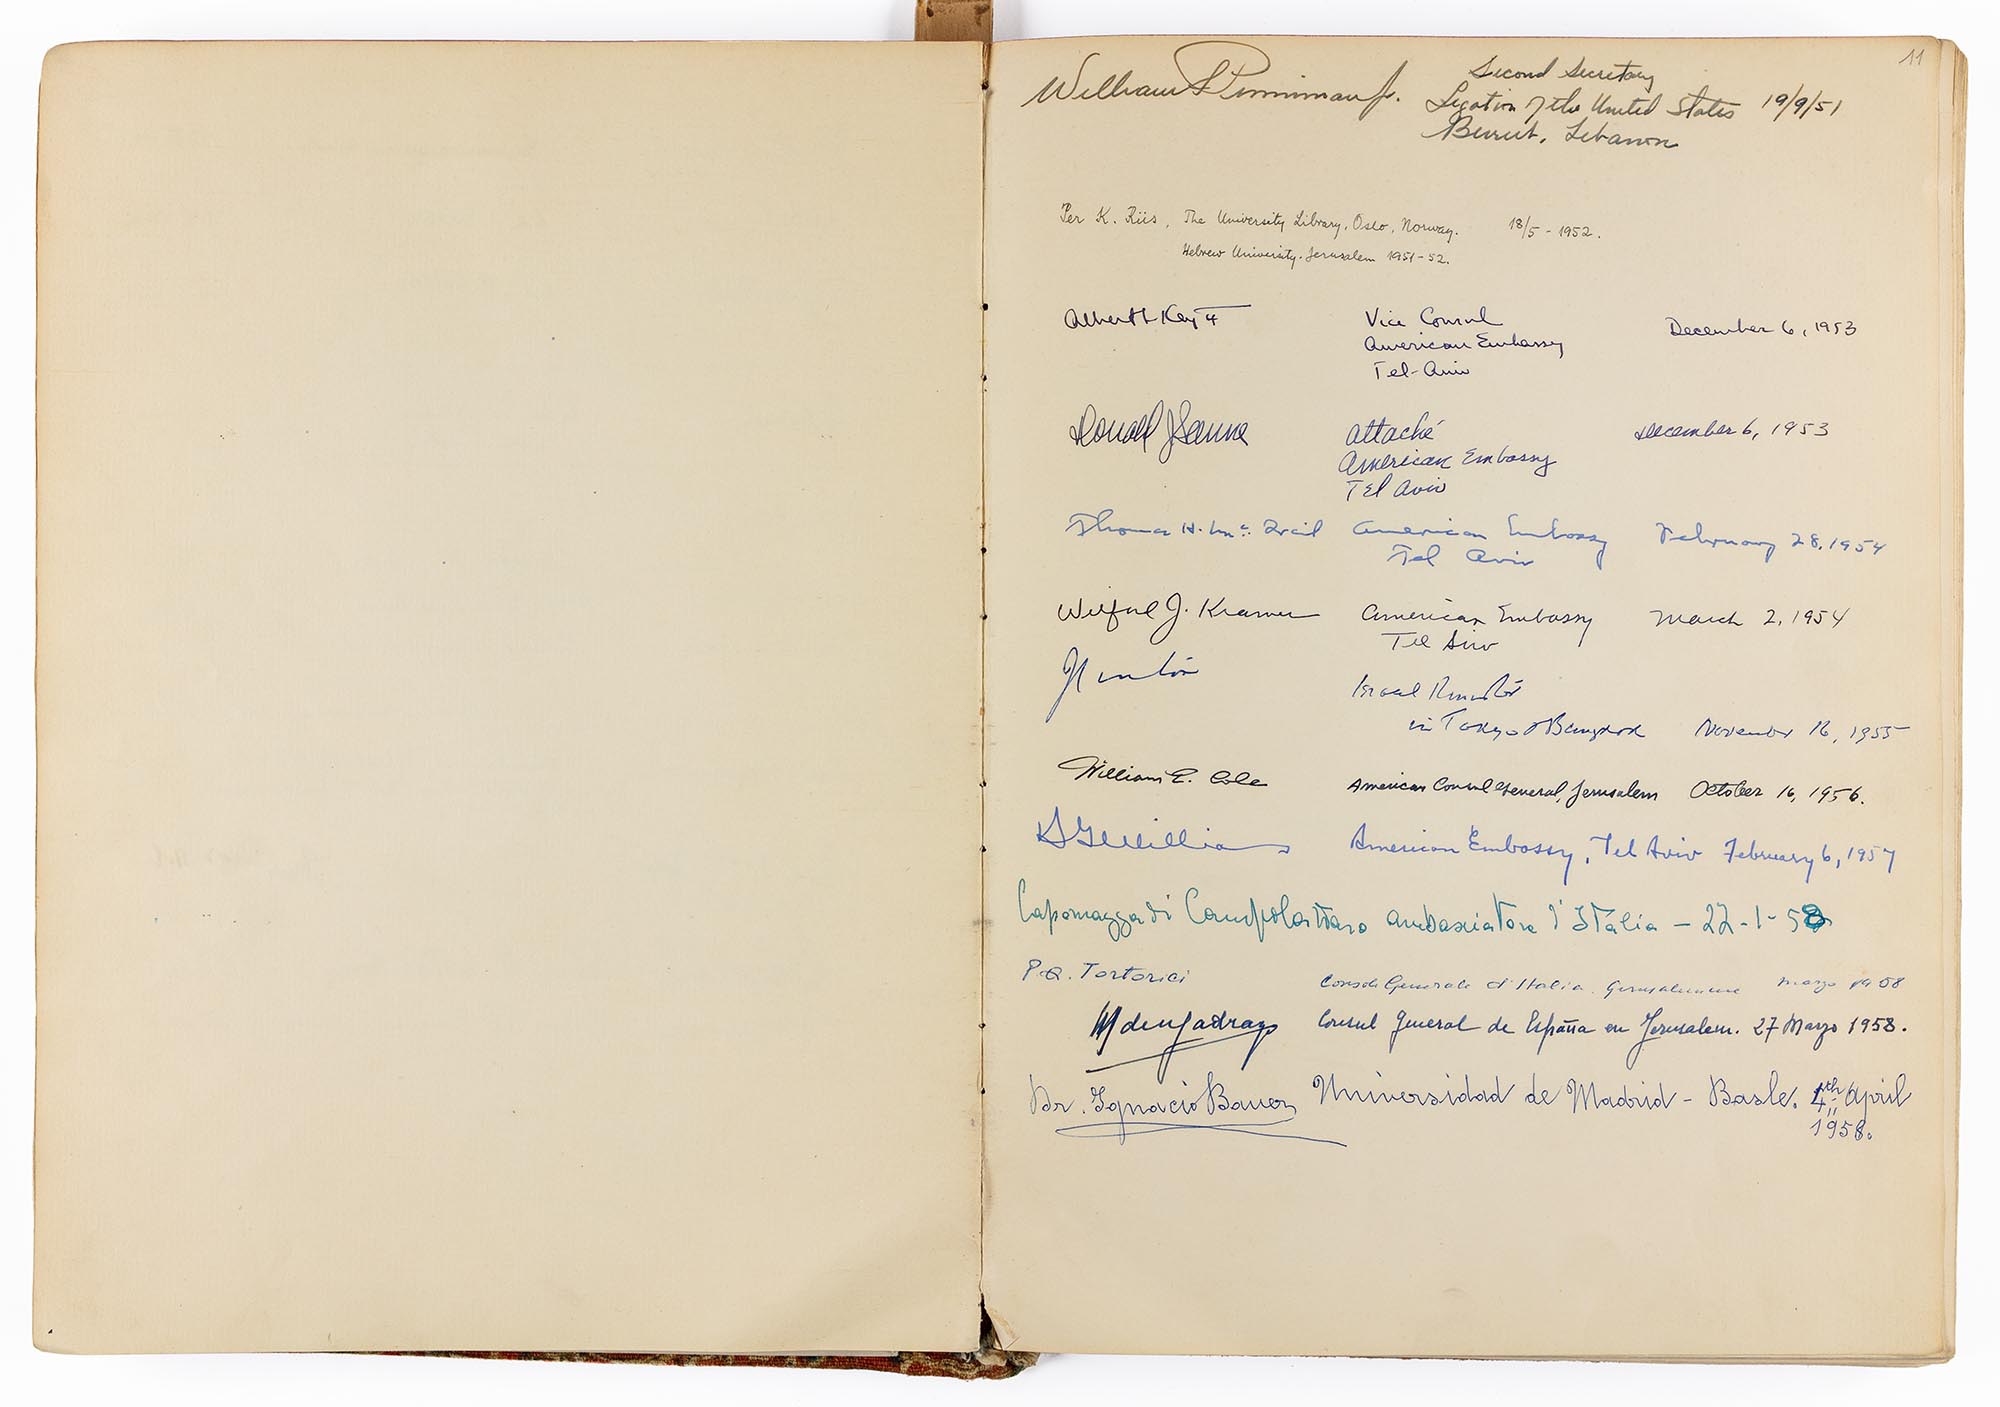 11
William Jr. Second Secretary
Legation of the United States 19/9/51
Beirut, Lebanon
Per K. Riis, The University Library, Oslo, Norway. 18/5 - 1952.
Hebrew University. Jerusalem 1951-52.
Key Vice Consul December 6, 1953
American Embassy
Tel-Aviv
Ronald attaché December 6, 1953
American Embassy
Tel Aviv
Thomas H. American Embassy February 28, 1954
Tel Aviv
J. Kramer American Embassy March 2, 1954
Tel Aviv
Israel
in Tokyo & Bangkok November 16, 1955
William E. Cole American Consul General, Jerusalem October 16, 1956.
American Embassy, Tel Aviv February 6, 1957
Capomazza di Campolattaro ambasciatore d'Italia - 22-1-58
P.Q. Tortorici Console Generale d'Italia. Gerusalemme marzo 1958
Consul General de España en Jerusalem. 27 Marzo 1958.
Dr. Ignacio Bauer Universidad de Madrid - Basle. 4th April
1958.